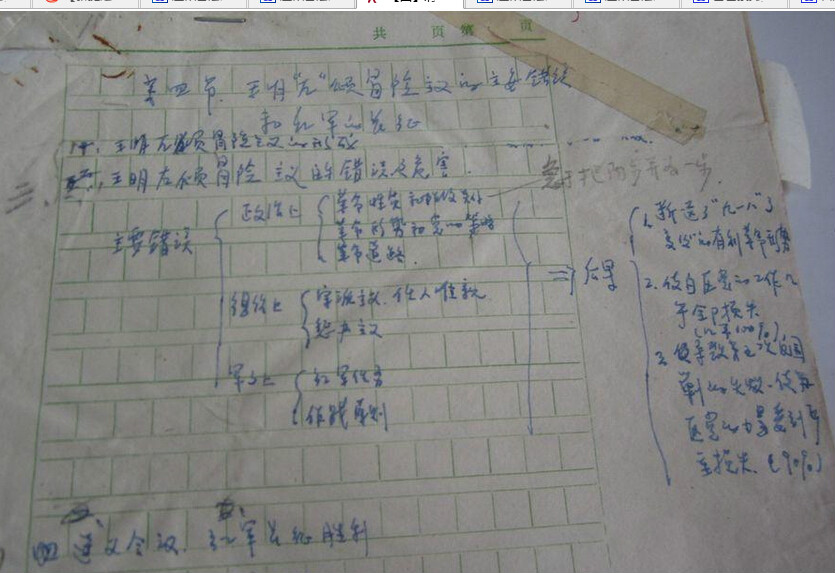 共 页 第 页
第四节. 王明"左"倾冒险主义的主要错误
和红军的长征
一、王明左倾冒险主义的形成
二、王明左倾冒险主义的错误及危害.
三、
主要错误
政治上
革命性质和阶级关系
革命形势和党的策略
革命道路.
组织上
宗派主义、任人唯亲
惩办主义
军事上
红军任务
作战原则
⇒ 后果
1. 断送了"九一八"事
变后的有利革命形势
2. 使白区党的工作几
乎全部损失
(几乎100%)
3. 使导致第五次反围
剿的失败、使苏
区党的力量受到严
重损失. (90%)
四 遵义会议、红军长征胜利